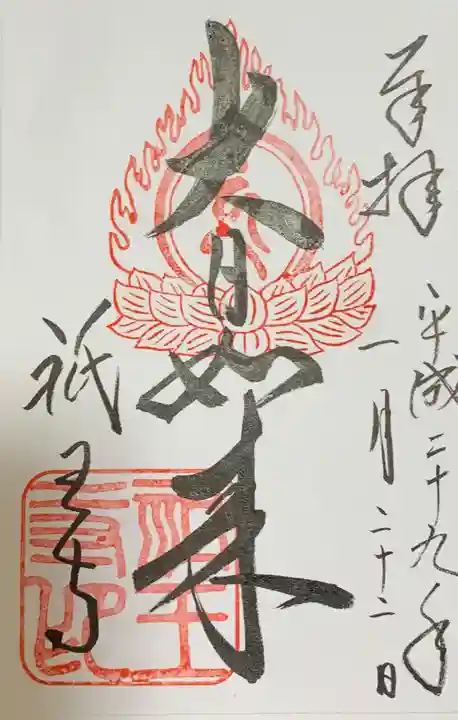 奉拝
平成二十九年
一月二十二日
大日如来
祇王寺
祇王
寺印